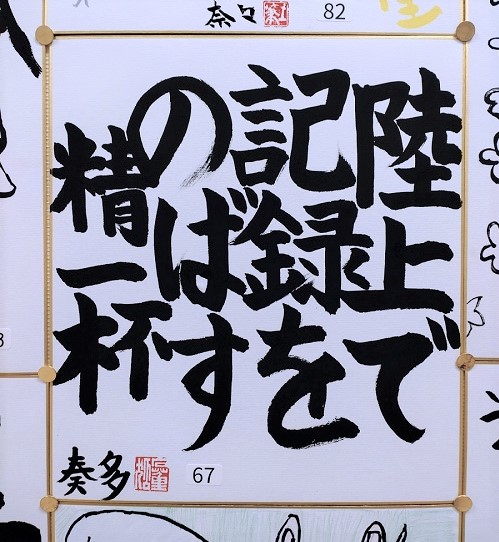 奈々
82
陸上で
記録を
のばす
精一杯
奏多
67